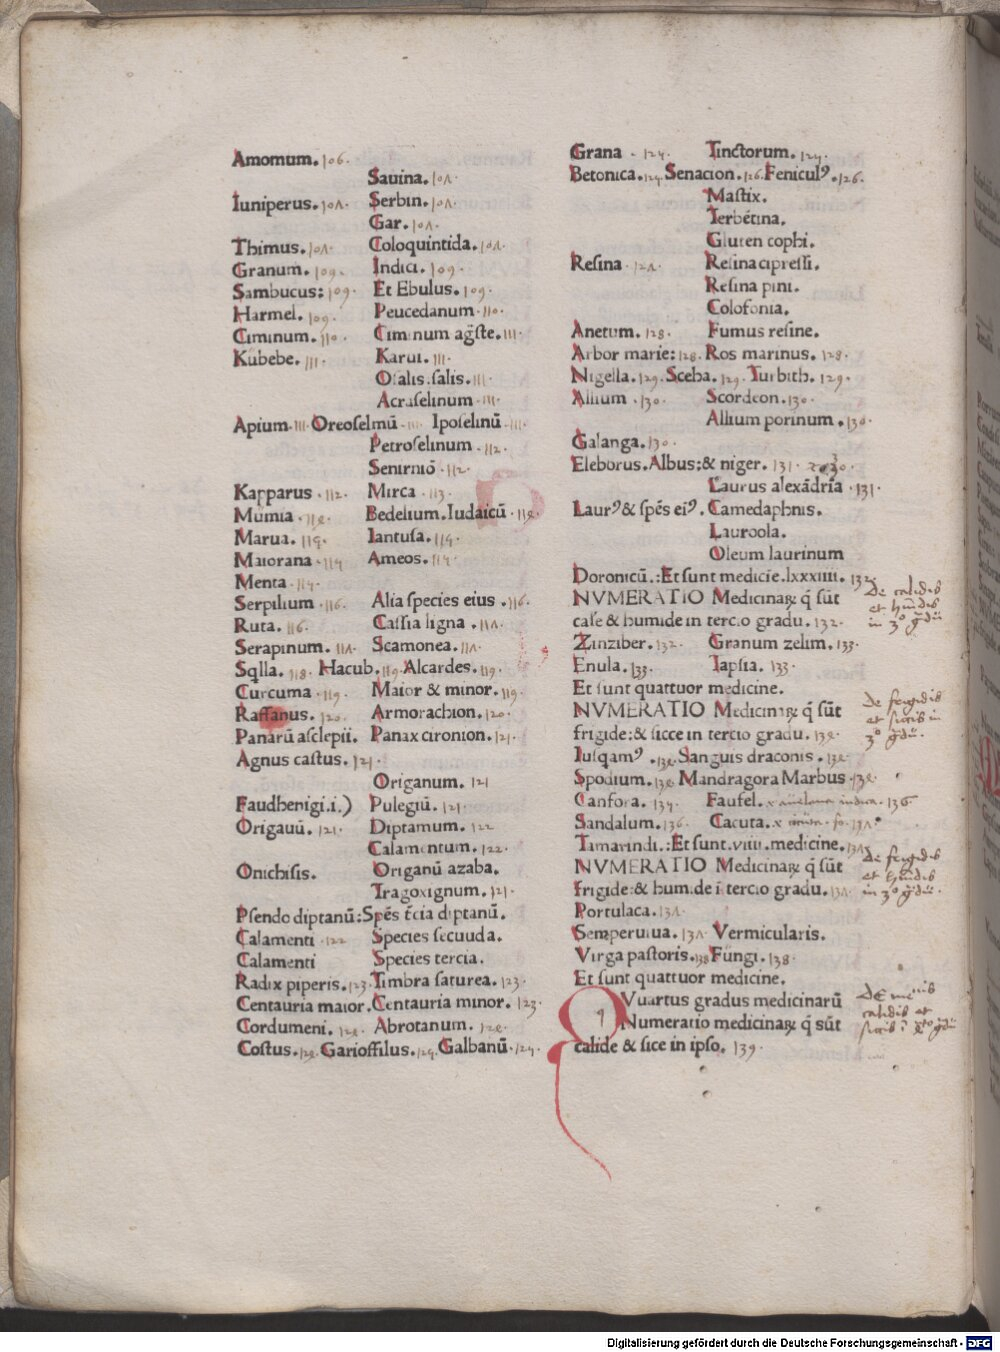 Amomum. 106.
Sauina. 108.
Iuniperus. 108. Serbin. 108.
Gar. 108.
Thimus. 108. Coloquintida. 108.
Granum. 109. Indici. 109.
Sambucus: 109. Et Ebulus. 109.
Harmel. 109. Peucedanum 110.
Ciminum. 110. Ciminum ag̃ste. 111.
Kubebe. 111. Karui. 111.
Ofalis.salis. 111.
Acraselinum 111.
Apium 111 Oreoselmū 111 Iposelinū 111
Petroselinum 112.
Senirniō 112.
Kapparus 112. Mirca 113.
Mumia 114. Bedelium. Iudaicū 114
Marua. 114. Iantusa. 114.
Maiorana 114 Ameos. 114
Menta 114.
Serpilium 116. Alia species eius. 116.
Ruta. 116. Cassia ligna. 118.
Serapinum. 118. Scamonea. 118.
Sq̄lla. 118. Hacub. 119. Alcardes. 119.
Curcuma 119. Maior & minor. 119.
Raffanus. 120. Armorachion. 120.
Panarū asclepii. Panax cironion. 121.
Agnus castus. 121.
Origanum. 121
Faudhenigi.i.) Pulegiū. 121.
Origauū. 121. Diptamum. 122
Calamentum. 122.
Onichisis. Origanū azaba.
Tragoxignum. 121.
Psendo diptanū: Spēs t̄cia diptanū.
Calamenti 122 Species secuuda.
Calamenti Species tercia.
Radix piperis. 123 Timbra saturea. 123.
Centauria maior. Centauria minor. 123.
Cordumeni. 124. Abrotanum. 124.
Costus. 124. Garioffilus. 124. Galbanū 124.
Grana 124. Tinctorum. 124.
Betonica. 124. Senacion. 126. Fenicul⁹. 126.
Mastix.
Terbētina.
Gluten cophi.
Resina 128. Resina cipressi.
Resina pini.
Colofonia.
Anetum. 128. Fumus resine.
Arbor marie: 128. Ros marinus. 128.
Nigella. 129. Sceba. 129. Turbith. 129.
Allium 130. Scordeon. 130.
Allium porinum. 130.
Galanga. 130.
Eleborus. Albus: & niger. 131
Laurus alexādria 131.
Laur⁹ & spēs ei⁹. Camedaphnis.
Lauroola.
Oleum laurinum
Doronicū.: Et sunt medicīe.lxxxiiii. 132.
NVMERATIO Medicinaꝝ q̄ sūt
case & humide in tercio gradu. 132.
De calidis
et hūidis
in 3º g̃dū
Zinziber. 132. Granum zelim. 133.
Enula. 133. Tapsia. 133.
Et sunt quattuor medicine.
NVMERATIO Medicinaꝝ q̄ sūt
frigide: & sicce in tercio gradu. 134.
De frigidis
et siccis in
3º g̃dū.
Iusqam⁹. 134. Sanguis draconis. 134.
Spodium. 134 Mandragora Marbus 134.
Canfora. 134. Faufel. auellana indica. 136.
Sandalum. 136. Cacuta.
Tamarindi.: Et sunt.viii.medicine.
NVMERATIO Medicinaꝝ q̄ sūt
frigide: & humide ī tercio gradu. 138.
De frigidis
et hūidis
in 3º g̃dū.
Portulaca. 138.
Semperuiua. 138 Vermicularis.
Virga pastoris. 138 Fūngi. 138.
Et sunt quattuor medicine.
QVuartus gradus medicinarū
Numeratio medicinaꝝ q̄ sūt
calide & sice in ipso. 139.
calidis et
Digitalisierung gefördert durch die Deutsche Forschungsgemeinschaft - DFG